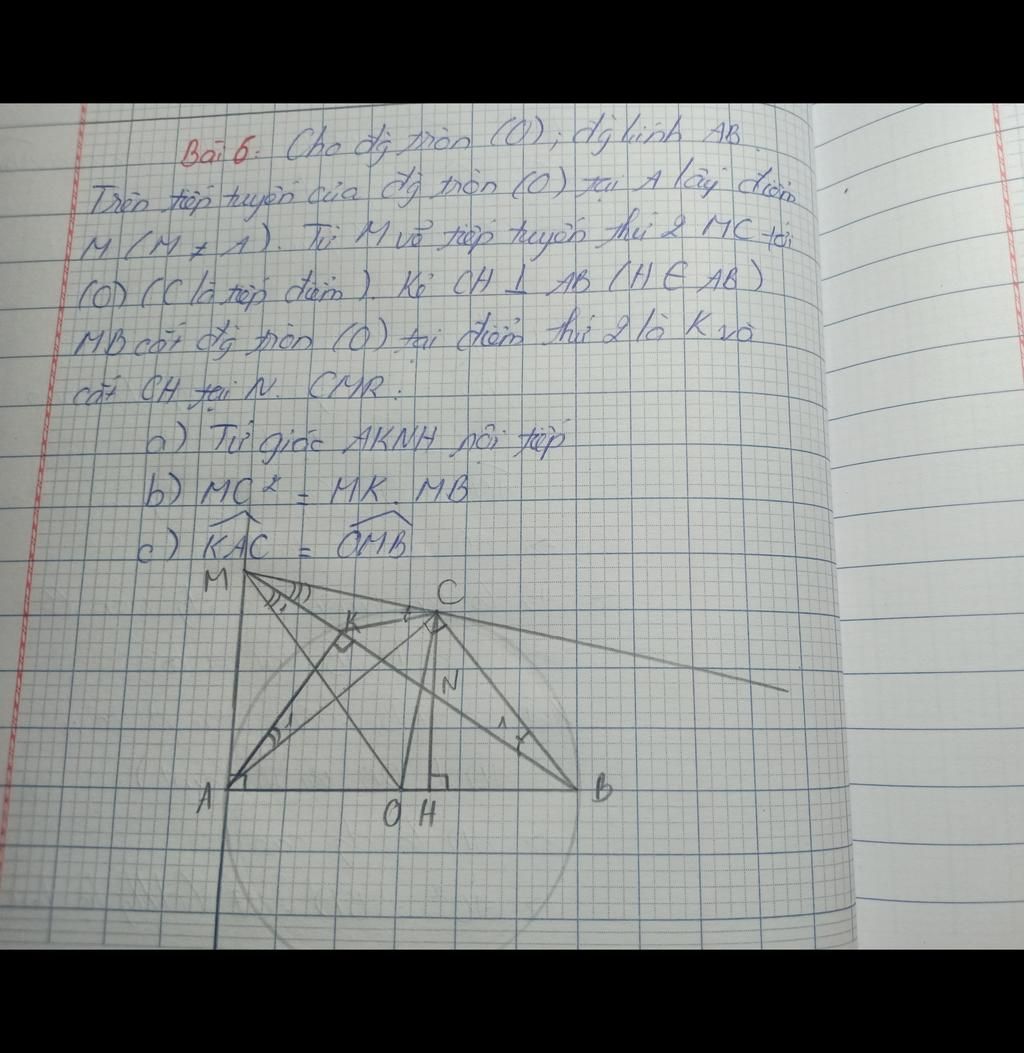 Bài 6: Cho đg tròn (O); đg kính AB
Trên tiếp tuyến của đg tròn (O) tại A lấy điểm
M (M ≠ A). Từ M vẽ tiếp tuyến thứ 2 MC tới
(O) (C là tiếp điểm). Kẻ CH ⊥ AB (H ∈ AB)
MB cắt đg tròn (O) tại điểm thứ 2 là K và
cắt CH tại N. CMR:
a) Tứ giác AKNH nội tiếp
b) MC² = MK. MB
c) \widehat{KAC} = \widehat{OMB}
M
C
K
1
N
1
1
A
O H
B